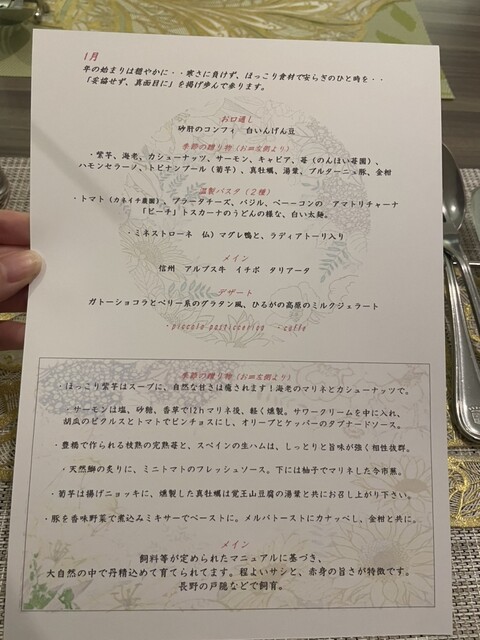 1月
年の始まりは穏やかに・・寒さに負けず、ほっこり食材で安らぎのひと時を・・
「妥協せず、真面目に」を掲げ歩んで参ります。
お口通し
砂肝のコンフィ 白いんげん豆
季節の贈り物（お皿左側より）
・紫芋、海老、カシューナッツ、サーモン、キャビア、苺（のんほい苺園）、
ハモンセラーノ、トピナンブール（菊芋）、真牡蠣、湯葉、ブルターニュ豚、金柑
温製パスタ（2種）
・トマト（カネイチ農園）、ブラータチーズ、バジル、ベーコンの アマトリチャーナ
「ピーチ」トスカーナのうどんの様な、白い太麺。
・ミネストローネ 仏）マグレ鴨と、ラディアトーリ入り
メイン
信州 アルプス牛 イチボ タリアータ
デザート
ガトーショコラとベリー系のグラタン風、ひるがの高原のミルクジェラート
・piccola pasticceria ・caffe
季節の贈り物（お皿左側より）
・ほっこり紫芋はスープに、自然な甘さは癒されます！海老のマリネとカシューナッツで。
・サーモンは塩、砂糖、香草で12hマリネ後、軽く燻製。サワークリームを中に入れ、
胡瓜のピクルスとトマトでピンチョスにし、オリーブとケッパーのタプナードソース。
・豊橋で作られる枝熟の完熟苺と、スペインの生ハムは、しっとりと旨味が強く相性抜群。
・天然鰤の炙りに、ミニトマトのフレッシュソース。下には柚子でマリネした今市蕪。
・菊芋は揚げニョッキに、燻製した真牡蠣は覚王山豆腐の湯葉と共にお召し上がり下さい。
・豚を香味野菜で煮込みミキサーでペーストに。メルバトーストにカナッペし、金柑と共に。
メイン
飼料等が定められたマニュアルに基づき、
大自然の中で丹精込めて育てられてます。程よいサシと、赤身の旨さが特徴です。
長野の戸隠などで飼育。